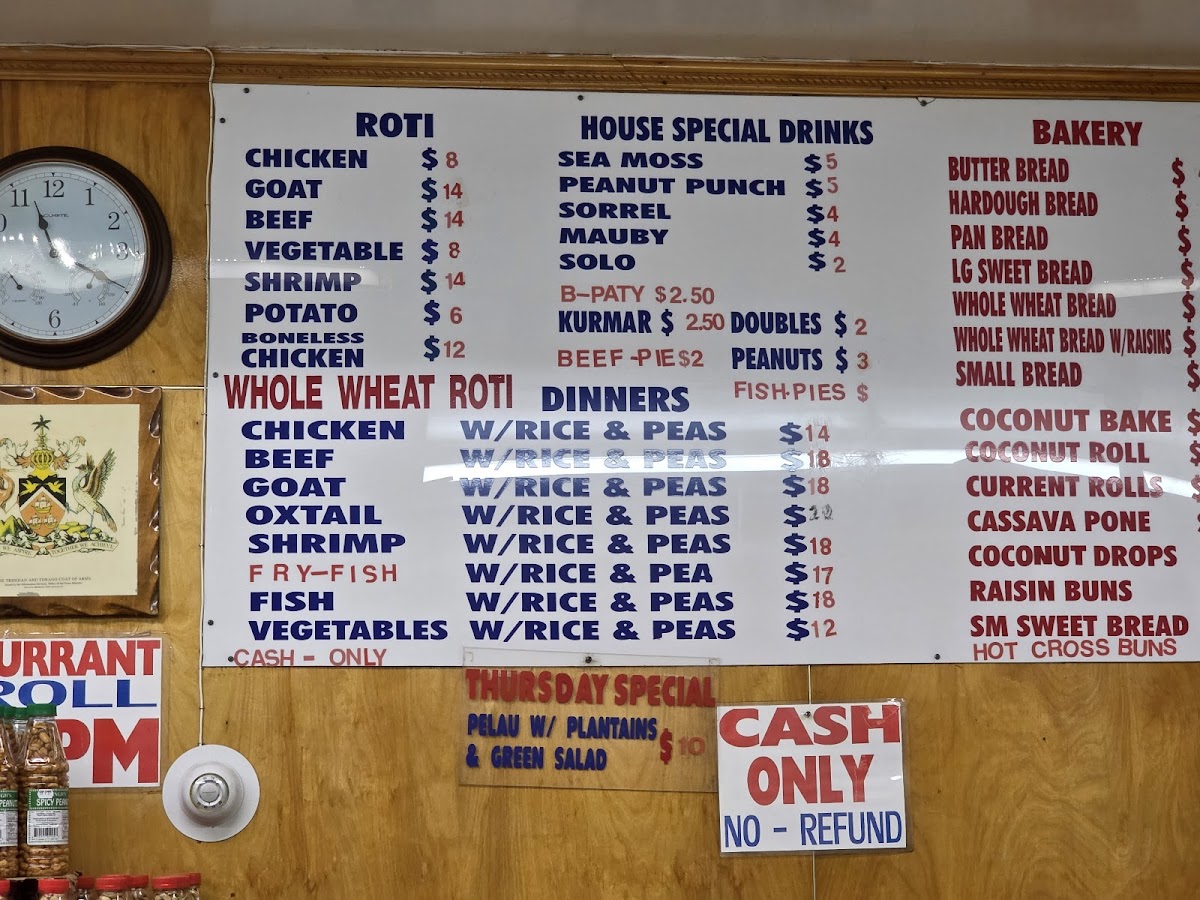 ROTI
CHICKEN $ 8
GOAT $ 14
BEEF $ 14
VEGETABLE $ 8
SHRIMP $ 14
POTATO $ 6
BONELESS
CHICKEN $ 12
WHOLE WHEAT ROTI
HOUSE SPECIAL DRINKS
SEA MOSS $ 5
PEANUT PUNCH $ 5
SORREL $ 4
MAUBY $ 4
SOLO $ 2
B-PATY $ 2.50
KURMAR $ 2.50 DOUBLES $ 2
BEEF-PIE $2 PEANUTS $ 3
FISH-PIES $
DINNERS
CHICKEN W/RICE & PEAS $14
BEEF W/RICE & PEAS $18
GOAT W/RICE & PEAS $18
OXTAIL W/RICE & PEAS $
SHRIMP W/RICE & PEAS $18
FRY-FISH W/RICE & PEA $17
FISH W/RICE & PEAS $18
VEGETABLES W/RICE & PEAS $12
CASH - ONLY
BAKERY
BUTTER BREAD $
HARDOUGH BREAD $
PAN BREAD $
LG SWEET BREAD $
WHOLE WHEAT BREAD $
WHOLE WHEAT BREAD W/RAISINS $
SMALL BREAD $
COCONUT BAKE $
COCONUT ROLL $
CURRENT ROLLS $
CASSAVA PONE
COCONUT DROPS
RAISIN BUNS
SM SWEET BREAD
HOT CROSS BUNS
THURSDAY SPECIAL
PELAU W/ PLANTAINS
& GREEN SALAD $ 10
CASH
ONLY
NO - REFUND
URRANT
ROLL
PM
11 12 1
2
3
6
SPICY